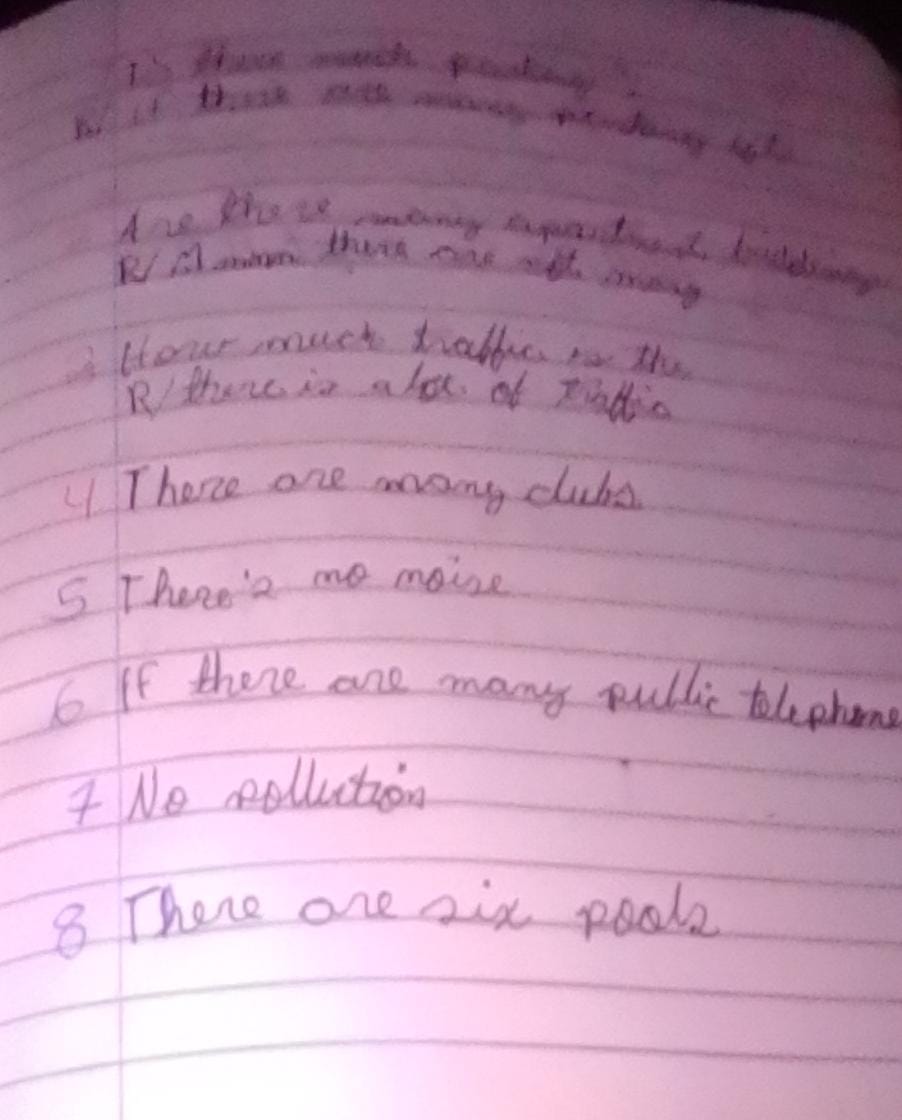 Is there much parking?
R/ if there are many parking
Are there many apartment buildings
R/ there are many
How much traffic is the
R/ there is a lot of Traffic
4 There are many clubs
5 There's no noise
6 If there are many public telephone
7 No pollution
8 There are six pools